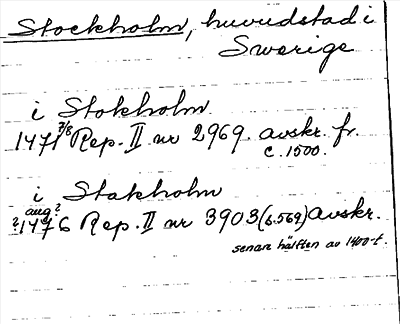 Stockholm, huvudstad i
Sverige
i Stokholm
1471 7/8 Rep. II nr 2969. avskr. fr.
c. 1500.
i Stakholm
aug?
?1476 Rep. II nr 3903 (s. 569) avskr.
senare hälften av 1400-t.